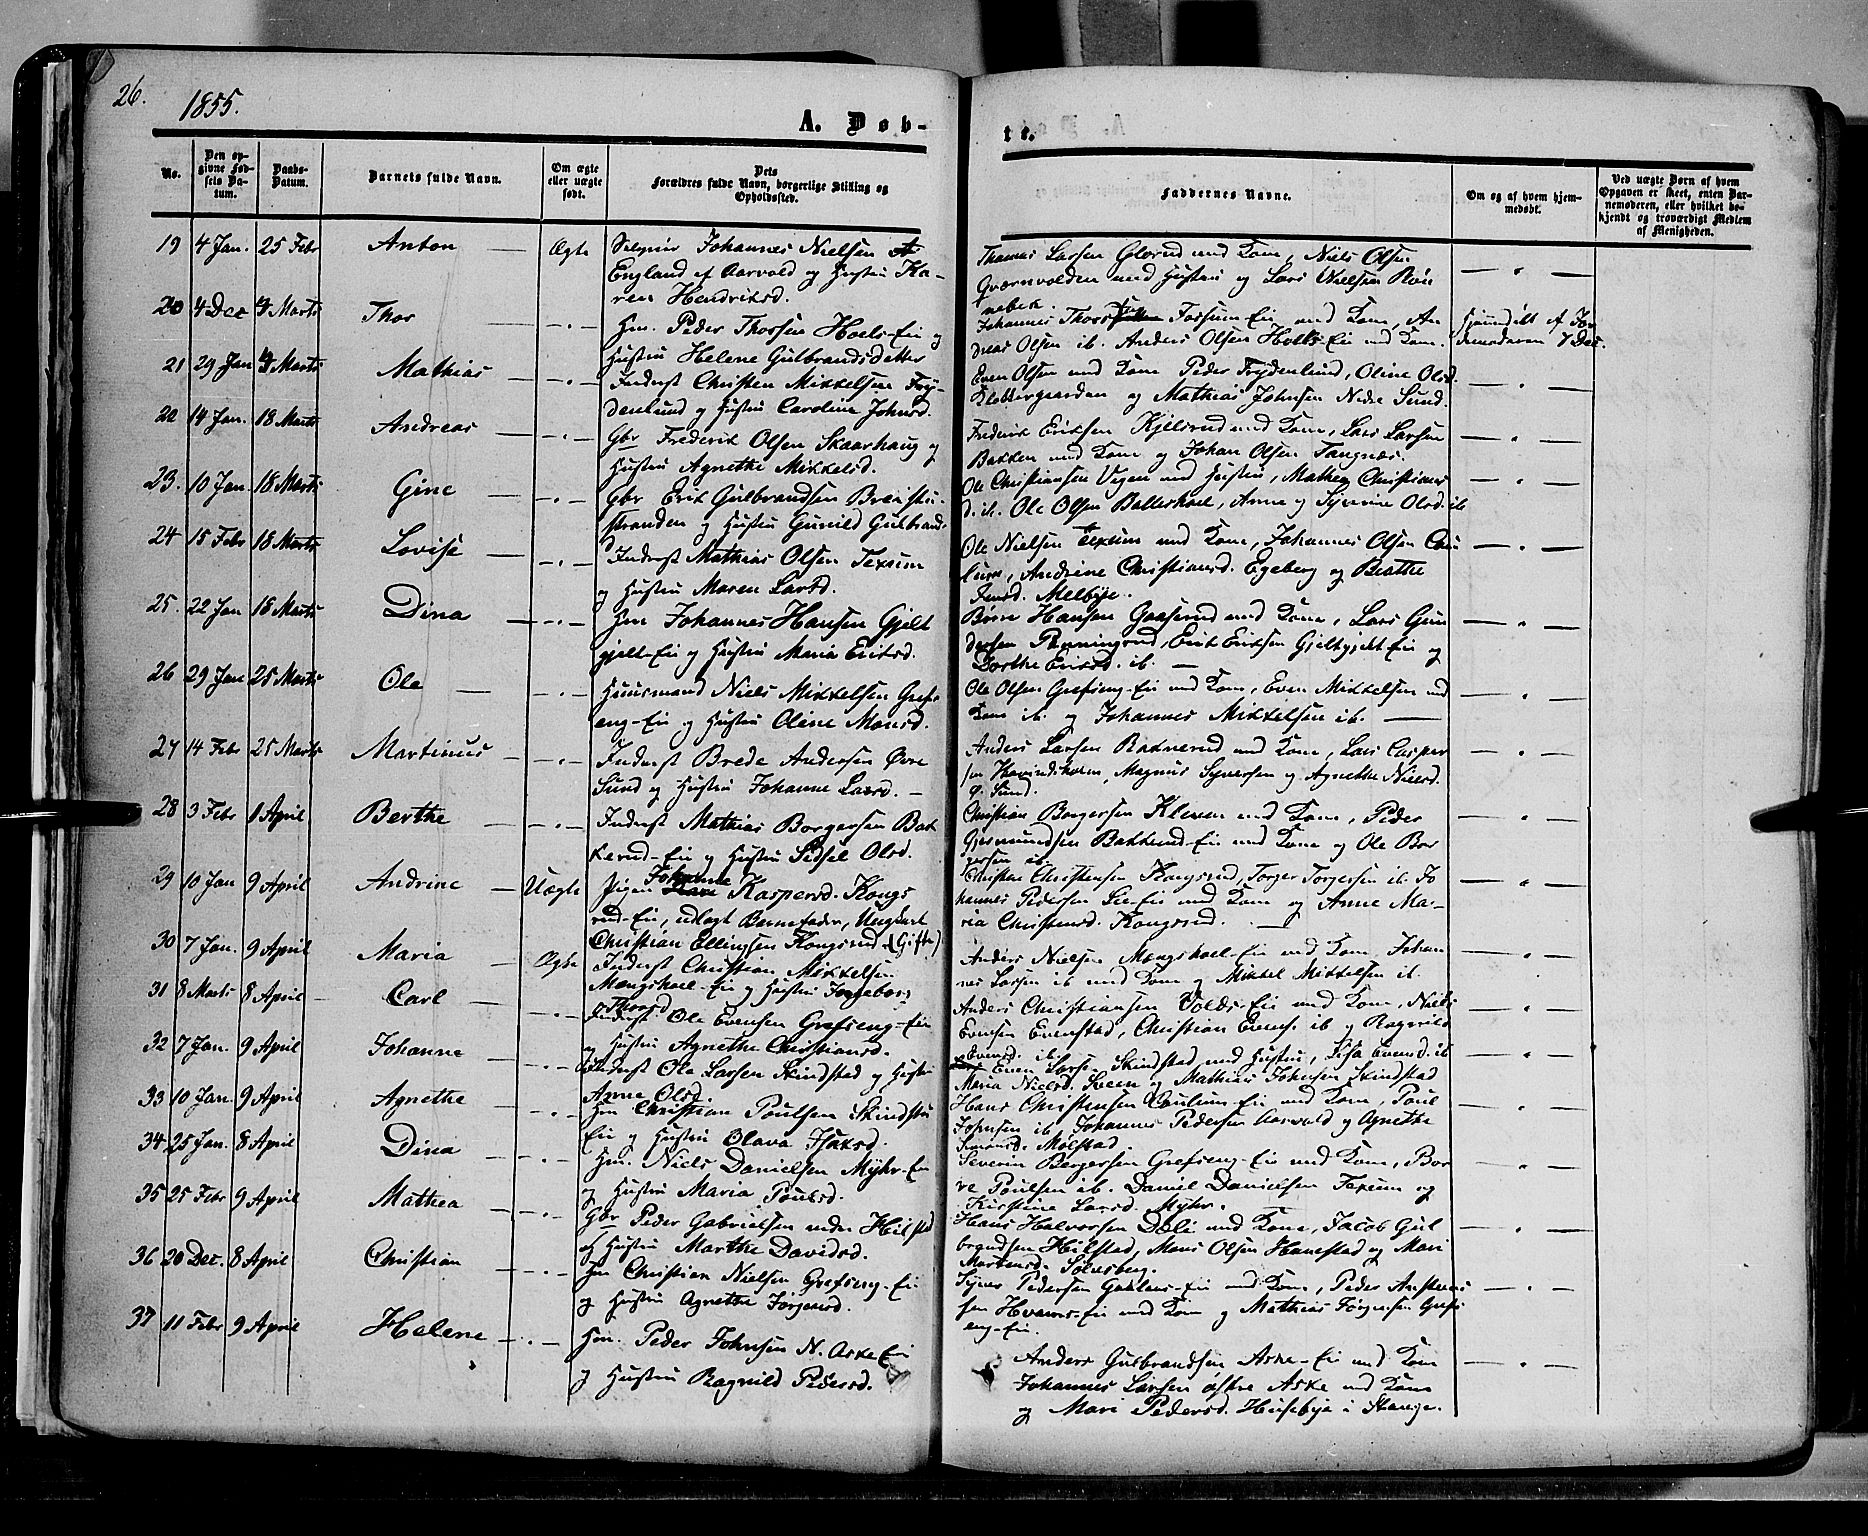 26.
1855.
A. Døb-
te.
No.
Den op-
givne Fød-
sels Da-
tum.
Daabs-
Datum.
Barnets fulde Navn.
Om ægte
eller uægte
født.
Dets
Forældres fulde Navn, borgerlige Stilling og
Opholdssted.
Faddernes Navne.
Om og af hvem hjem-
medøbt.
Ved uægte Børn af hvem
Opgaven er skeet, enten Bar-
nemoderen, eller hvilket be-
kjendt og troværdigt Medlem
af Menigheden.
19 4 Jan. 25 Febr Anton Ægte Johannes Nielsen
England af Aarvold og Hustru Ka-
ren Hendriksd.
Thomas Larsen Glorud med Kone, Niels Olsen
Qværnvolden med Hustru og Lars Nielsen Røn
nebek.
20 4 Dec 4 Marts Thor Hm. Peder Thorsen Hoels-Ei og
Hustru Helene Gulbrandsdatter
Johannes Thorsen Fossum-Ei med Kone, An
dreas Olsen ib. Anders Olsen Holls-Ei med Kone.
Hjemdøbt af Jor
demoderen 7 Dec.
21 29 Jan 4 Marts Mathias Inderst Christen Mikkelsen Fry-
denlund og Hustru Caroline Johnsd.
Even Olsen med Kone Peder Frydenlund, Oline Olsd.
Klokkergaarden og Mathias Johnsen Nedre Sund.
22 14 Jan. 18 Marts Andreas Gbr Frederik Olsen Skaarhaug og
Hustru Agnethe Mikkelsd.
Frederik Eriksen Kjelsrud med Kone, Lars Larsen
Bakken med Kone og Johan Olsen Tangnæs.
23. 10 Jan. 18 Marts Gine Gbr Erik Gulbrandsen
stranden og Hustru Gunild Gulbrands
d
Ole Christiansen Vegen med Hustru, Mathea Christians
d. ib. Ole Olsen Ballerhoel, Anne og Syverine Olsd. ib
24 15 Febr 18 Marts Lovise Inderst Mathias Olsen Texum
og Hustru Maren Larsd.
Ole Nielsen Texum med Kone, Johannes Olsen Cou
lum, Andrine Christiansd. Egeberg og Beathe
Jensd. Melbye.
25. 22 Jan 18 Marts Dina Hm Johannes Hansen Gjelt
gjelt-Ei og Hustru Maria Eriksd.
Børre Hansen Gaaserud med Kone, Lars Gun
dersen Penningrud, Erik Eriksen Gjeltgjelt-Ei og
Dorthe Eriksd. ib.
26 29 Jan 25 Marts Ole Huusmand Niels Mikkelsen Grefs
eng-Ei og Hustru Oline Monsd.
Ole Olsen Grefseng-Ei med Kone, Even Mikkelsen med
Kone ib. og Johannes Mikkelsen ib.
27 14 Febr 25 Marts Martinus Inderst Brede Andersen Øvre
Sund og Hustru Johanne Larsd.
Anders Larsen Baknerud med Kone, Lars Casper
sen Havindsholm, Magnus Syversen og Agnethe Nielsd.
Ø. Sund.
28 3 Febr 1 April Berthe Inderst Mathias Borgersen Bak
kerud-Ei og Hustru Sidsel Olsd.
Christian Borgersen Kleven med Kone, Peder
Gjermundsen Bakkerud-Ei med Kone og Ole Bor
gersen ib.
29 10 Jan 9 April Andrine Uægte Pigen Johanne Kaspersd. Kongs
rud-Ei, udlagt Barnefader, Ungkarl
Christian Ellingsen Kongsrud (Gifte)
Christen Christensen Kongsrud, Torger Torgersen ib. Jo
hannes Pedersen Lie-Ei med Kone og Anne Ma-
ria Christensd. Kongsrud.
30 7 Jan. 9 April Maria Ægte Inderst Christian Mikkelsen
Mængshoel-Ei og Hustru Ingeborg
Thorsd
Anders Nielsen Mængshoel-Ei med Kone, Johan
nes Larsen ib med Kone og Mikkel Mikkelsen ib.
31 8 Marts 8 April Carl Inderst Ole Evensen Grefseng-Ei
og Hustru Agnethe Christiansd.
Anders Christiansen Volds-Ei med Kone, Niels
Evensen Evenstad, Christian Evens. ib og Ragnild
Evensd. ib.
32 7 Jan. 9 April Johanne Inderst Ole Larsen Skindstad og Hustru
Anne Olsd.
Even Lars. Skindstad med Hustru, Lisa Evensd. ib
Maria Nielsd. Sveen og Mathias Johnsen Skindstad
33 10 Jan. 9 April Agnethe Hm Christian Poulsen Skindsta
Ei og Hustru Olava Isaksd.
Hans Christensen Coulum-Ei med Kone, Poul
Johnsen ib, Johannes Pedersen Aarvold og Agnethe
Simensd. Mølstad.
34 25 Jan. 8 April Dina Hm. Niels Danielsen Myhr-Ei
og Hustru Maria Poulsd.
Severin Bergersen Grefseng-Ei med Kone, Bor
re Poulsen ib. Daniel Danielsen Texum og
Kirstine Larsd. Myhr.
35 25 Febr 9 April Mathea Gbr Peder Gabrielsen nedre Hilstad
og Hustru Marthe Davidsd.
Hans Halvorsen Dæli med Kone, Jacob Gul
brandsen Hilstad, Mons Olsen Hanestad og Mari
Mortensd. Solesberg.
36 20 Dec. 8 April Christian Hm Christian Nielsen Grefseng-Ei
og Hustru Agnethe Jørgensd.
Syver Pedersen Gaklus-Ei med Kone, Peder
sen Hvams-Ei med Kone og Mathias Jørgensen Grefs
eng-Ei.
37 11 Febr 9 April Helene Hm. Peder Johnsen N. Aske Ei
og Hustru Ragnild Pedersd.
Anders Gulbrandsen Aske-Ei med Kone
Johannes Larsen østre Aske med Kone
og Mari Pedersd. Husebye i Stange.